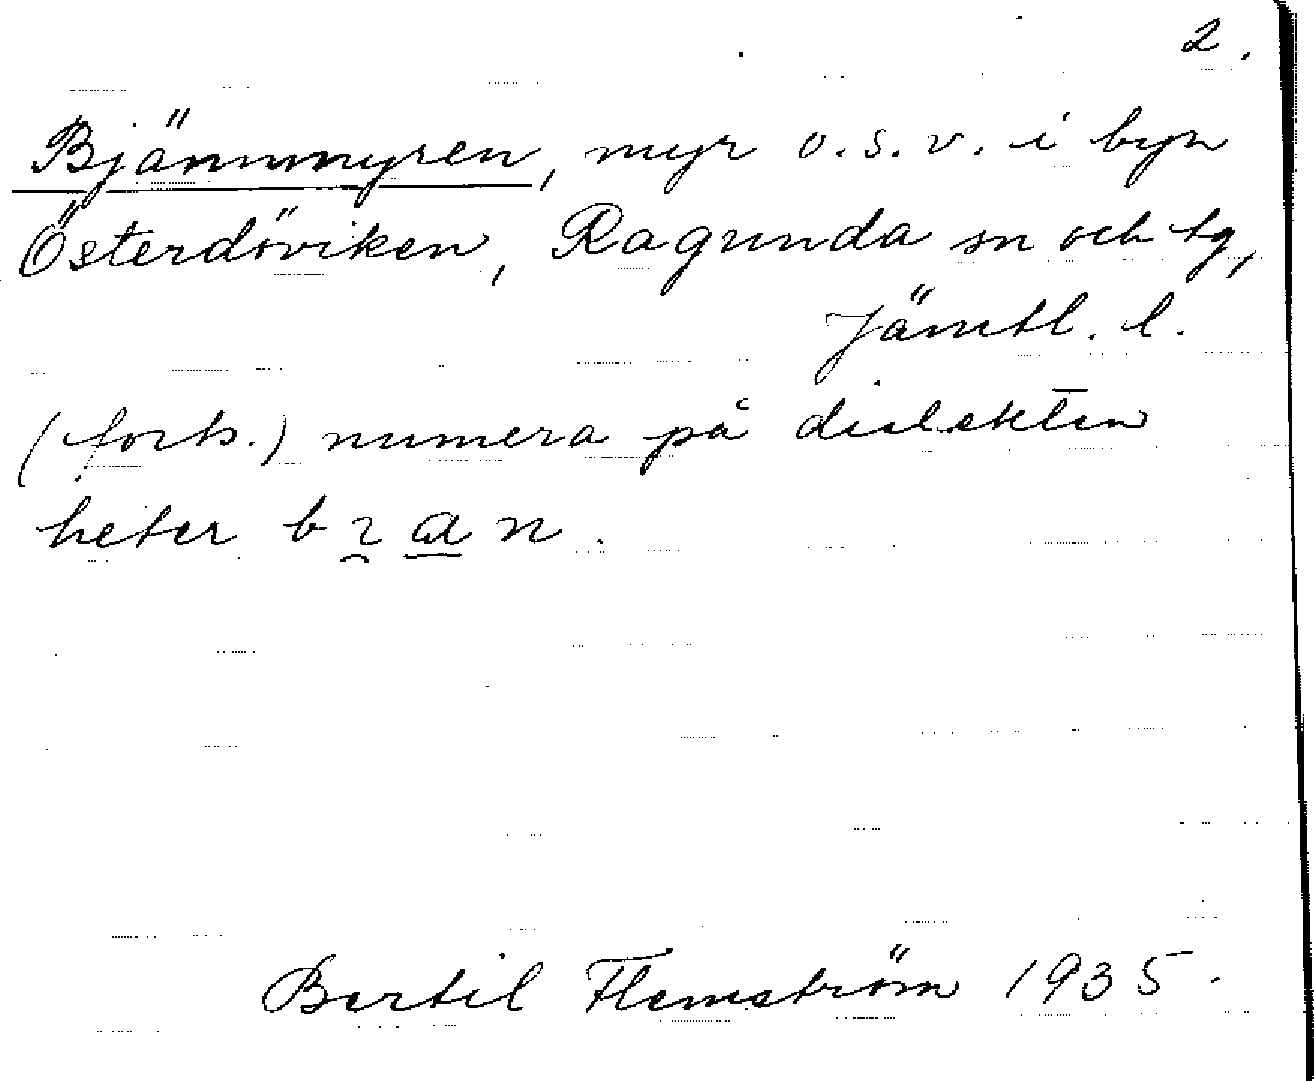 2.
Bjännmyren, myr o.s.v. i byn
Österdöviken, Ragunda sn och tg,
Jämtl. l.
(forts.) numera på dialekten
heter
Bertil Flemström 1935.